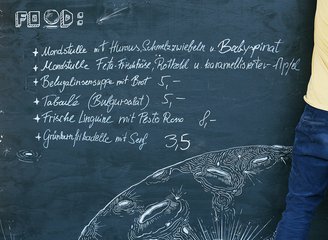 FOOD:
Mondstulle mit Humus, Schmelzzwiebeln u. Babyspinat
Mondstulle Feta-Frischkäse, Rotkohl u. karamellisierter Apfel
Belugalinsensuppe mit Brot 5,-
Tabaulé (Bulgursalat) 5,-
Frische Linguine mit Pesto Rosso 8,-
Grünkernfrikadelle mit Senf 3,5